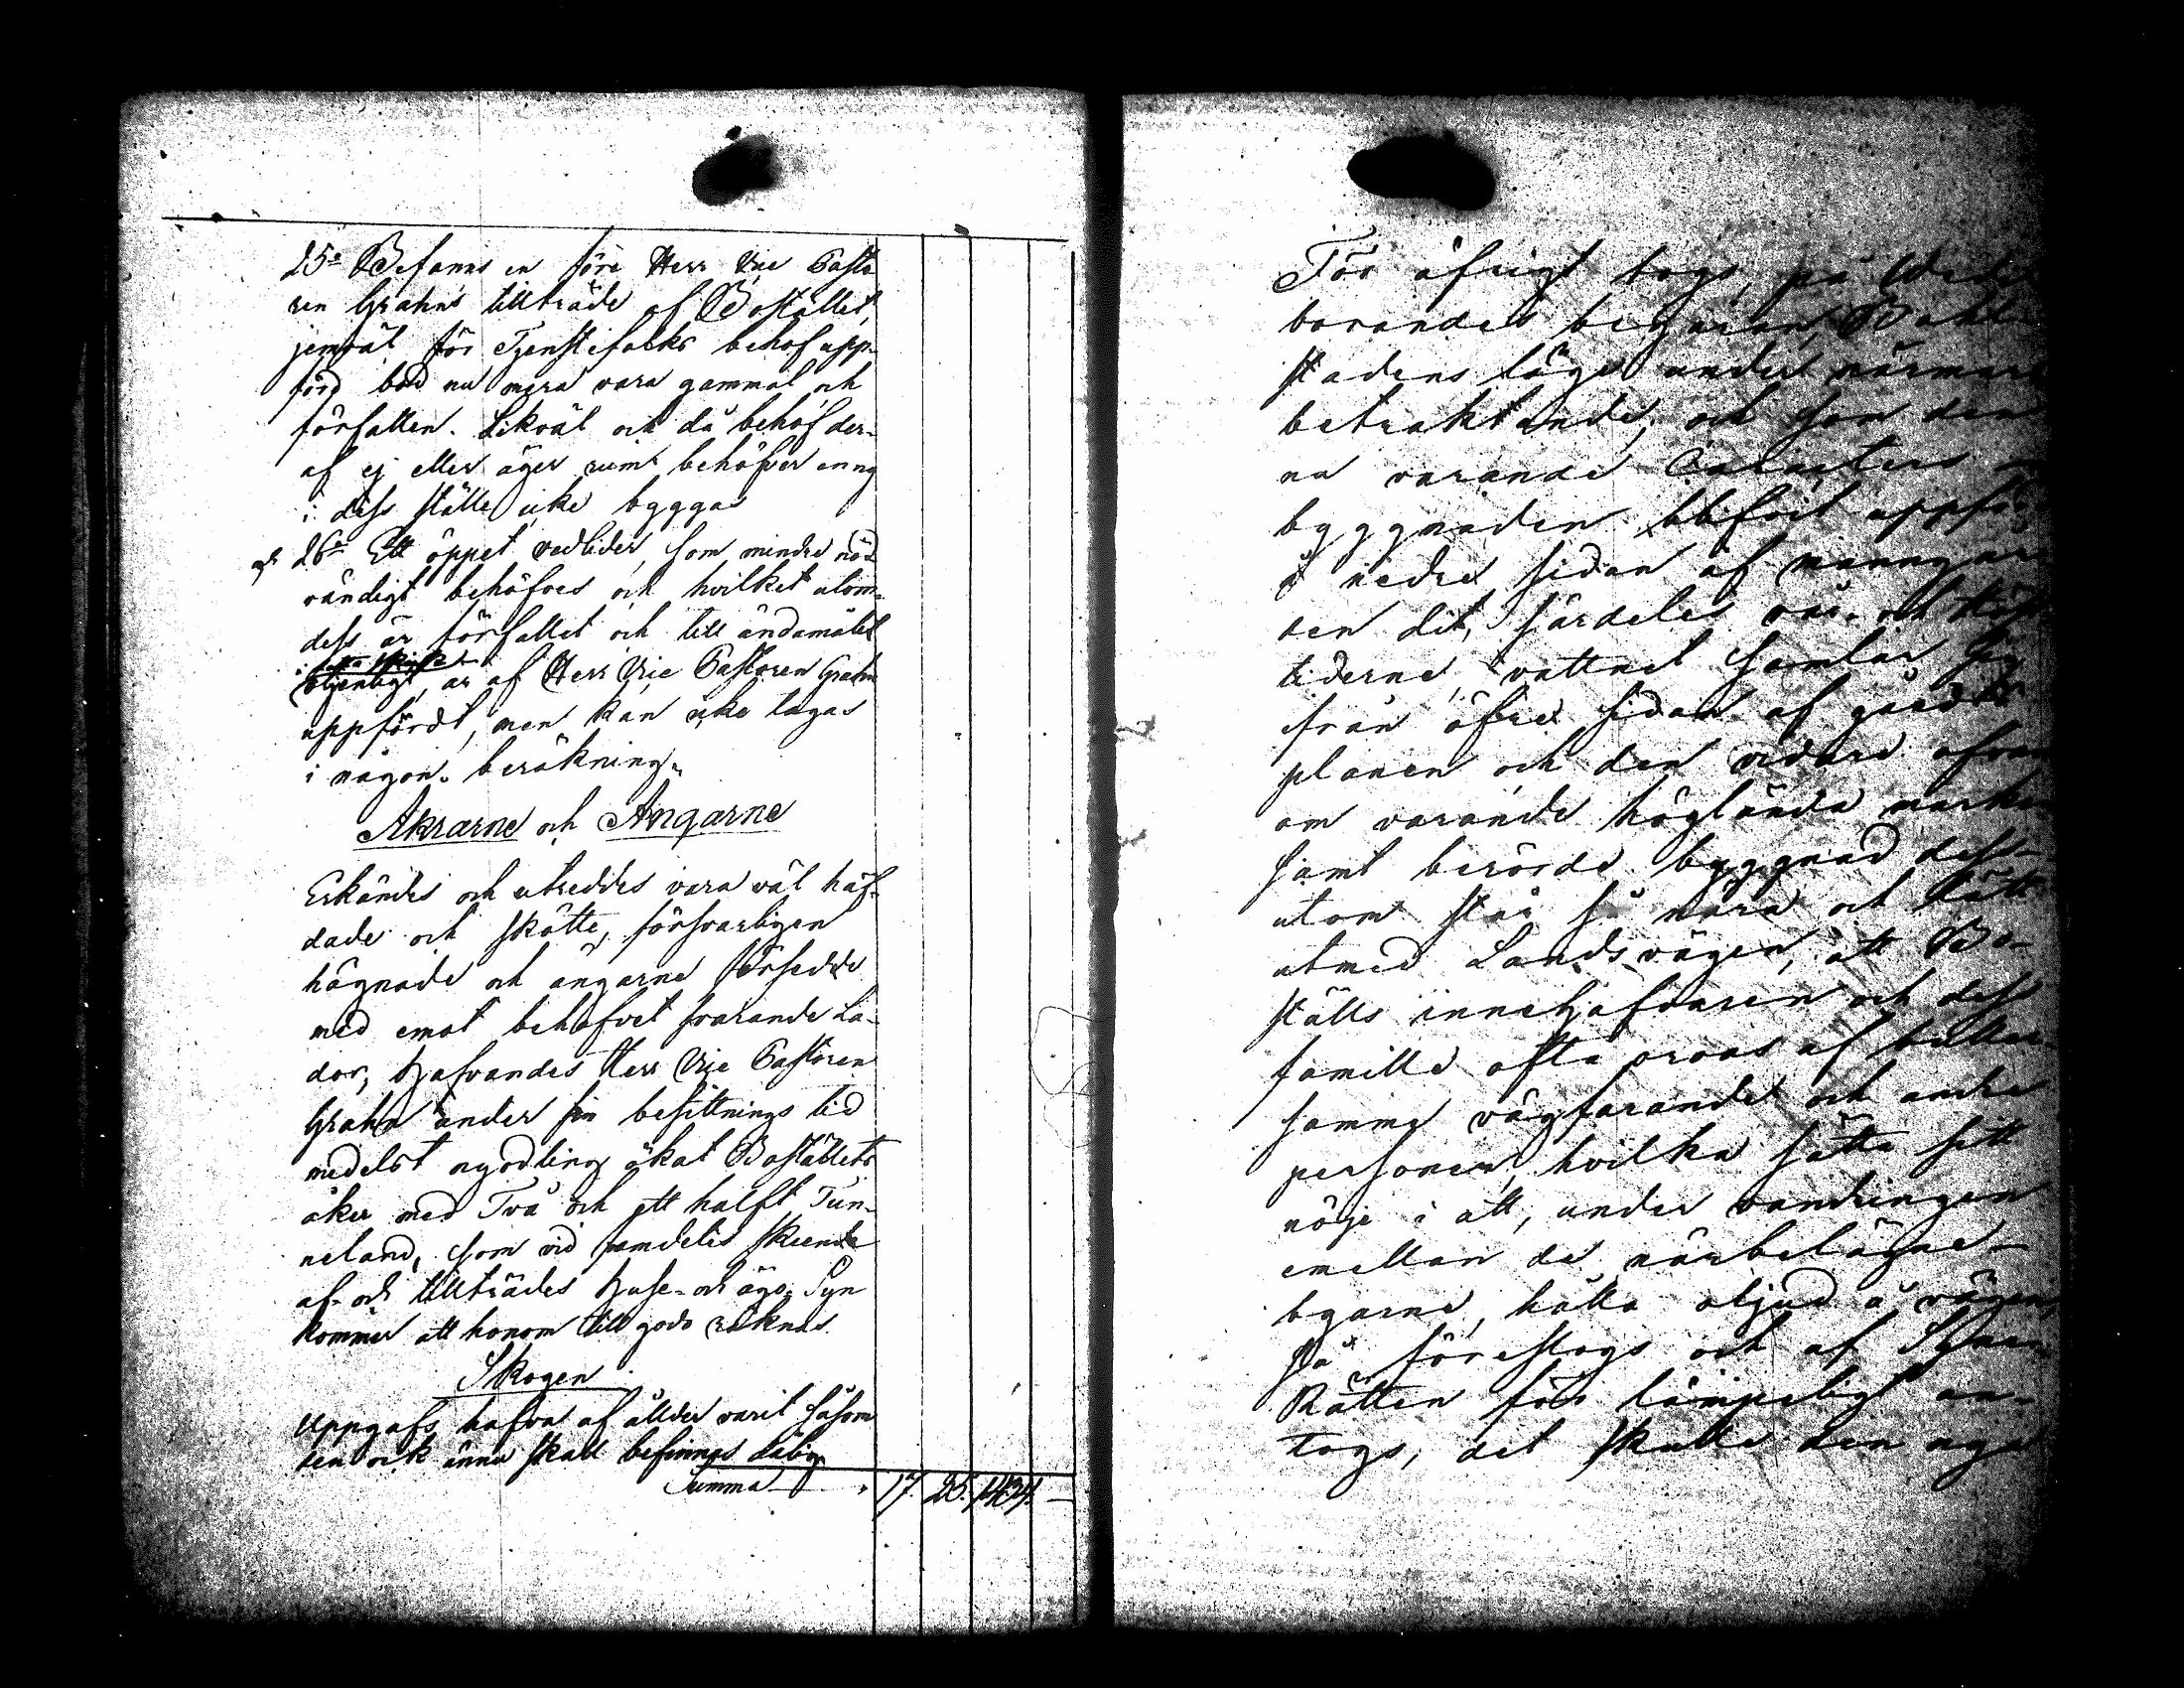 25o Befanns en före Herr Vice Pasto
ren Grahns tillträde af Bostället,
jemväl för Tjenstefolks behof upp-
förd bod nu mera vara gammal och
förfallen. Likväl och då behof der-
af ej eller äger rum behöfver en ny
i dess ställe icke byggas
26o Ett öppet vedlider, som mindre nöd
vändigt behöfves och hvilket utom-
dess är förfallet och till ändamålet
otjenligt, är af Herr Vice Pastoren Grahn
uppfördt, men kan icke tagas
i någon beräkning.
Åkrarne och Ängarne
Erkändes och utreddes vara väl häf-
dade och skötte, försvarligen
hägnade och ängarne försedde
med emot behofvet svarande La-
dor, hafvandes Herr Vice Pastoren
Grahn under sin besittnings tid
medelst nyodling ökat Boställets
åker med Två och ett halft Tun-
neland, som vid framdeles skeende
af- och tillträdes huse- och ägo-Syn
kommer att honom till godo räknas.
Skogen
Uppgafs hafva af ållder varit såsom
den ock ännu skall befinnas dålig
Summa 17. 25. 1434. —
För öfrigt togs, på
borandes begäran,
stadens läge under närmare
betraktande, och som den
nu varande Caracters
byggnaden blifvit uppförd
å nedre sidan af manngår
den dit, särdeles vår- och höst
tiderne, vattnet samlar sig
från öfre sidan af gårds
planen och den vidare ofvan
om varande höglända marken
samt berörde byggnad dess-
utom står så nära och tätt
utmed Landsvägen, att Bo-
ställs innehafvaren och dess
famille ofta oroas af buller-
samme vägfarande och andra
personer, hvilka sätta sitt
nöje i att, under vandringen
emellan de närbelägne
byarne, hålla oljud å vägen,
så föreslogs och af Syne-
Rätten för lämpeligt an-
togs, det skulle den nya